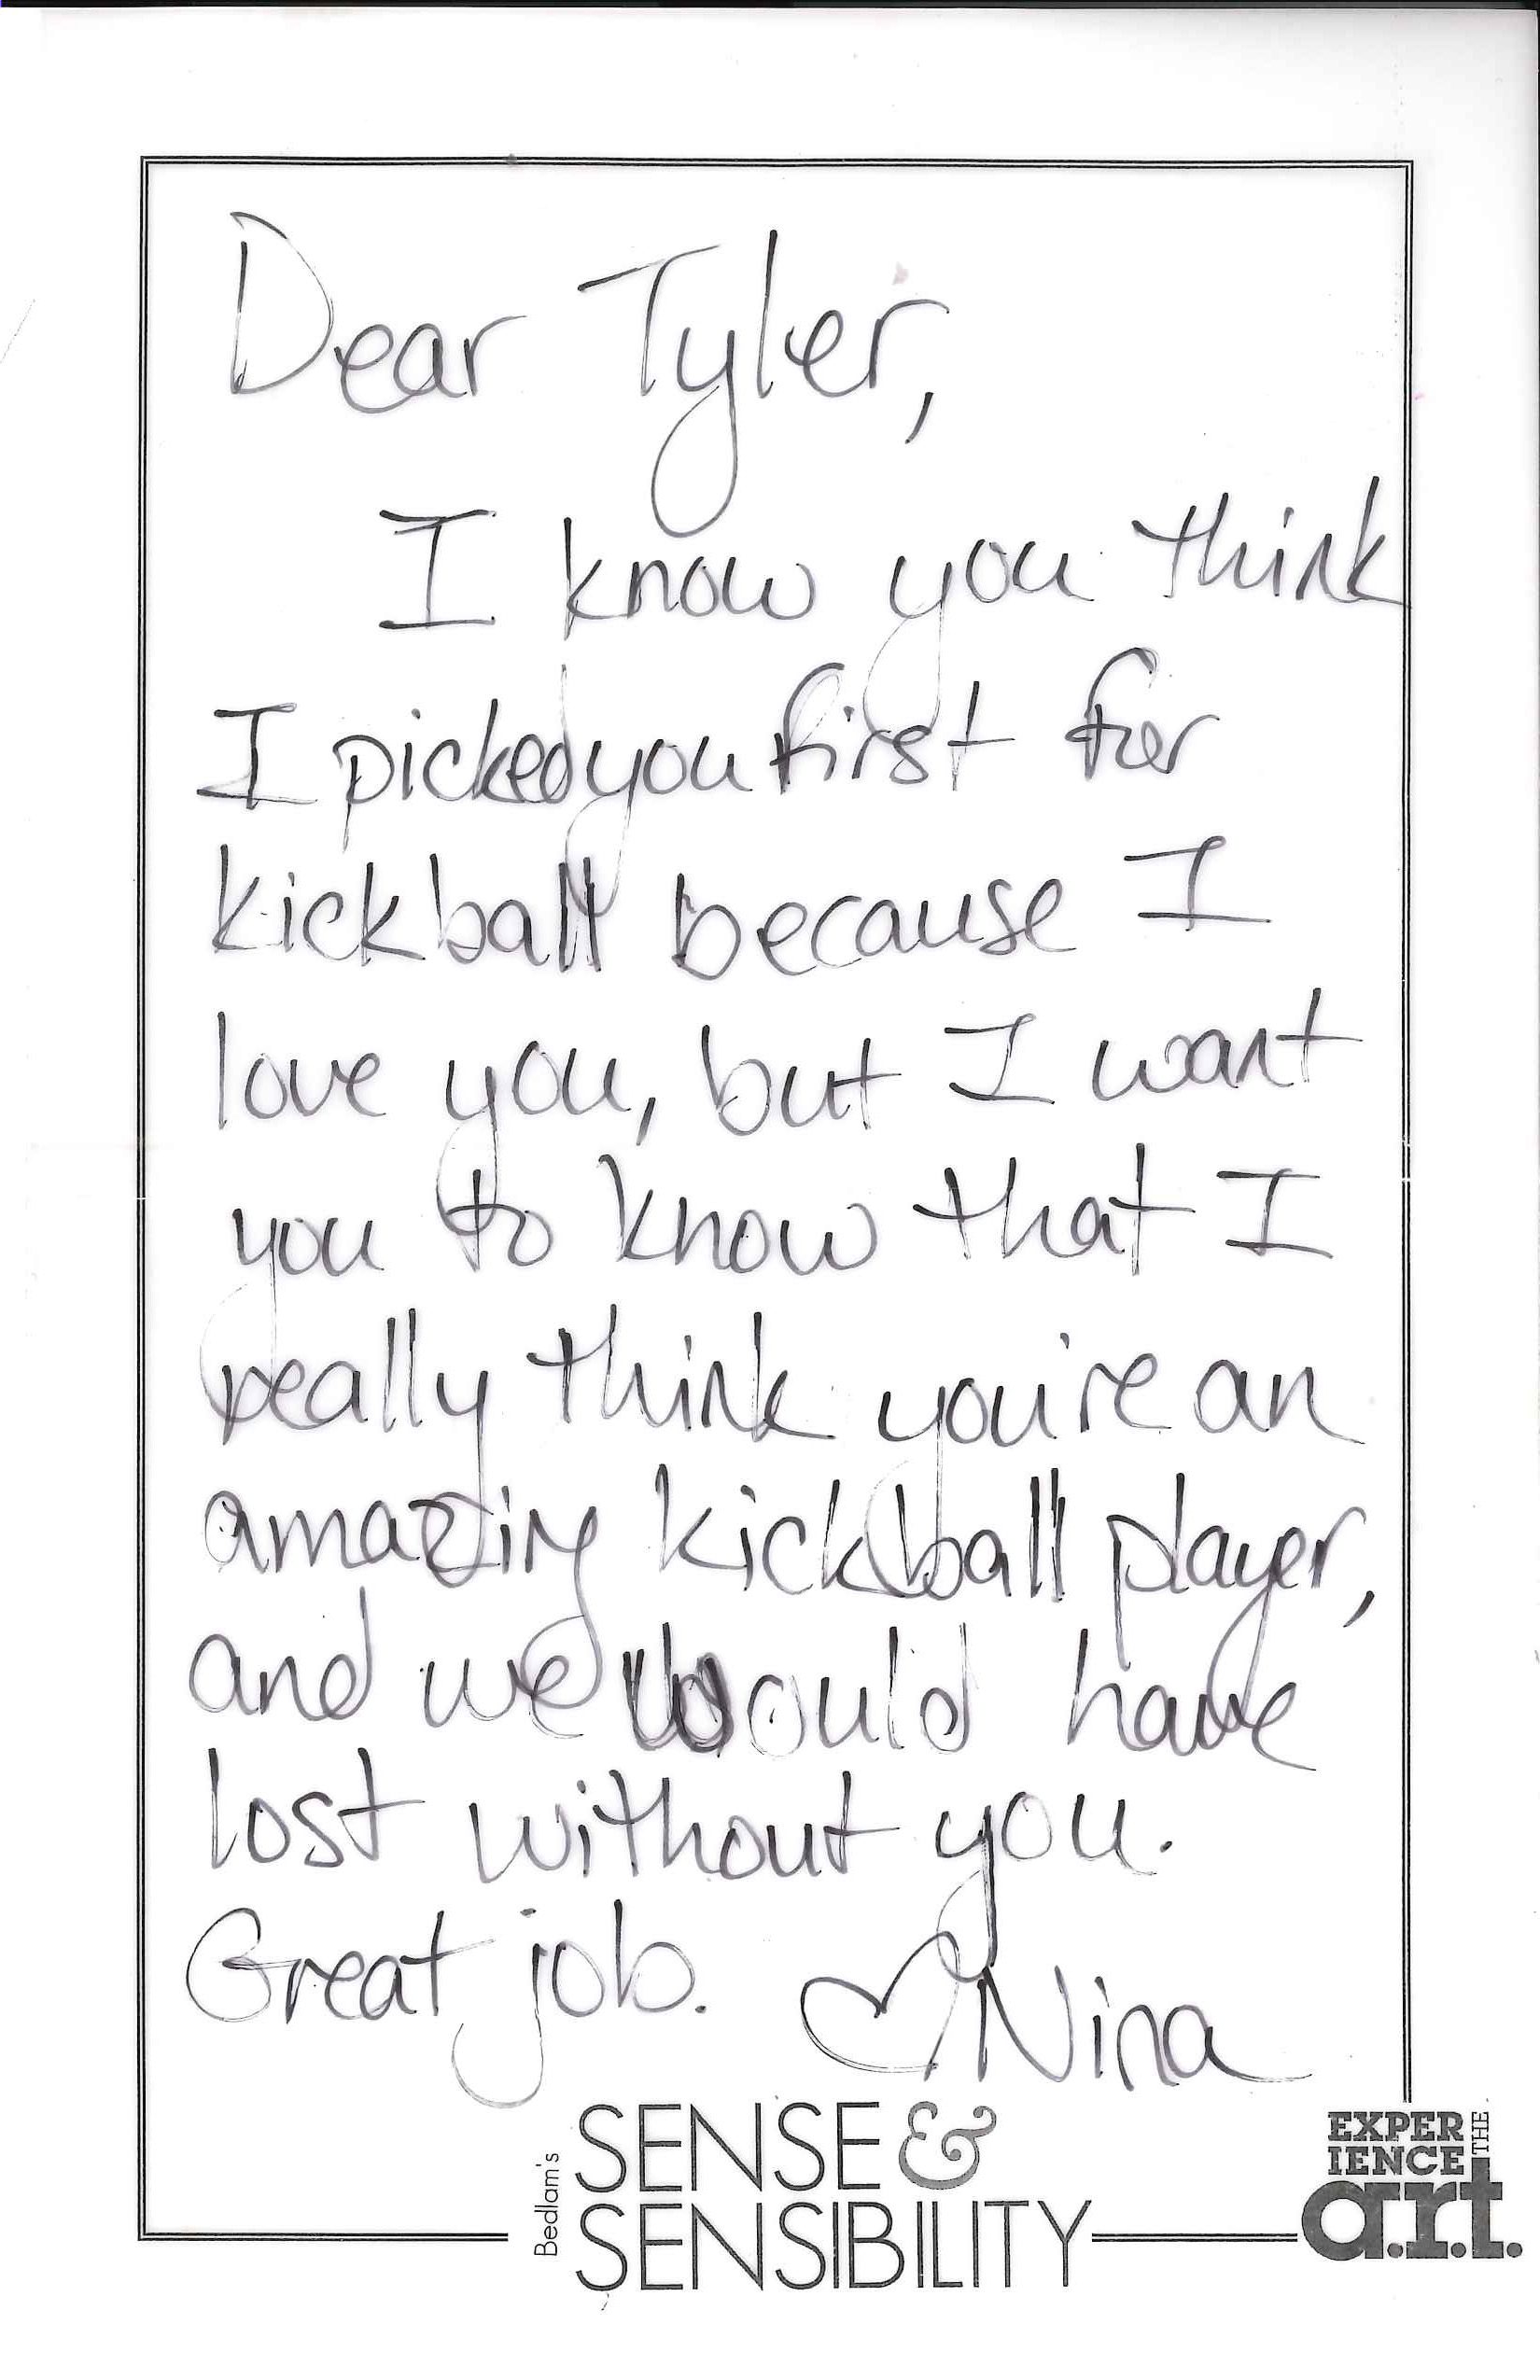 Dear Tyler,
I know you think
I picked you first for
kickball because I
love you, but I want
you to know that I
really think you're an
amazing kickball player,
and we would have
lost without you.
Great job. ♡ Nina
Bedlam's
SENSE &
SENSIBILITY
EXPER
IENCE
THE
a.r.t.